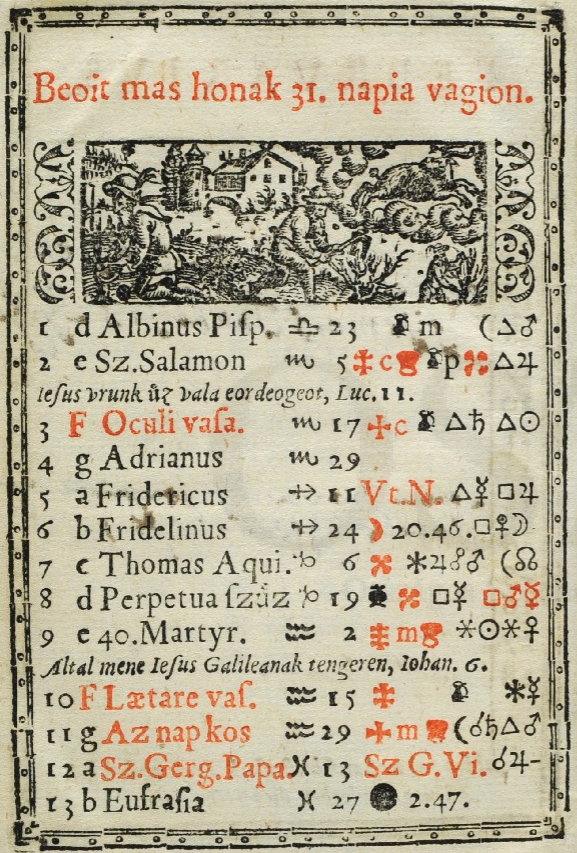 Beoit mas honak 31. napia vagion.
1 d Albinus Piſp. ♎ 23 m ( △ ♂
2 e Sz.Salamon ♏ 5 c p △ ♃
Iesus vrunk vala eordeogeot, Luc.11.
3 F Oculi vaſa. ♏ 17 c △ ♄ △ ☉
4 g Adrianus ♏ 29
5 a Fridericus ♐ 11 Vt.N. △ ☿ □ ♃
6 b Fridelinus ♐ 24 ☽ 20.46. □ ♀ ☽
7 c Thomas Aqui. ♑ 6 ⚹ ♃ ☍ ♂ ( ☊
8 d Perpetua ſzűz ♑ 19 □ ☿ □ ♂ ☿
9 e 40.Martyr. ♒ 2 m ⚹ ☉ ⚹ ♀
Altal mene Iesus Galileanak tengeren, Iohan. 6.
10 F Lætare vaſ. ♒ 15 ⚹ ☿
11 g Az nap kos ♒ 29 m ( ☌ ♄ △ ♂
12 a Sz.Gerg.Papa. ♓ 13 Sz G.Vi. ☌ ♃ -
13 b Eufraſia ♓ 27 ● 2.47.